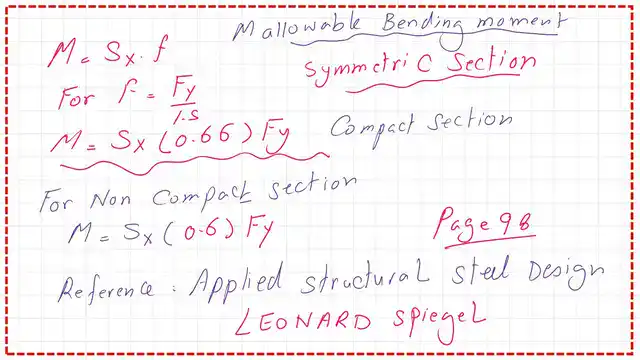 M allowable Bending moment
M = Sx . f
Symmetric Section
For f = Fy/1.5
M = Sx (0.66) Fy Compact section
For Non Compact section
M = Sx (0.6) Fy
Page 98
Reference : Applied structural steel Design
LEONARD Spiegel